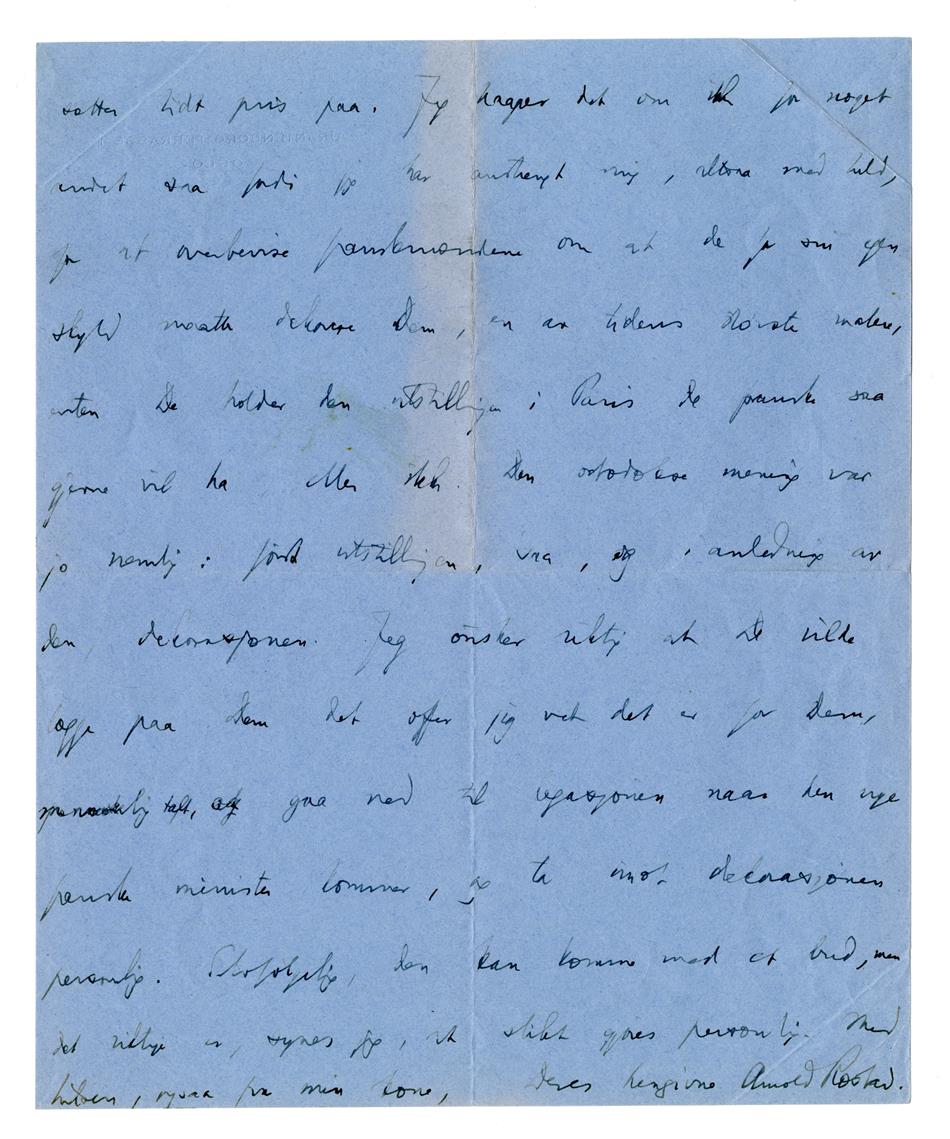 sætter lidt pris paa. Jeg haaper det om ikke for noget
andet saa fordi jeg har anstrengt mig, altsaa med held,
for at overbevise franskmændene om at de for sin egen
skyld maatte dekorere Dem, en av tidens største malere,
enten De holder den utstillingen i Paris de franske saa
gjerne vil ha eller ikke. Den ortodokse mening var
jo nemlig: først utstillingen, saa, og i anledning av
den, dekorasjonen. Jeg ønsker riktig at De vilde
lægge paa Dem det offer jeg vet det er for Dem,
gaa ned til legasjonen naar den nye
franske minister kommer, og ta imot dekorasjonen
personlig. Selvfølgelig, den kan komme med et bud, men
det riktige er, synes jeg, at slikt gjøres personlig. Med
hilsen, ogsaa fra min kone, Deres hengivne Arnold Ræstad.